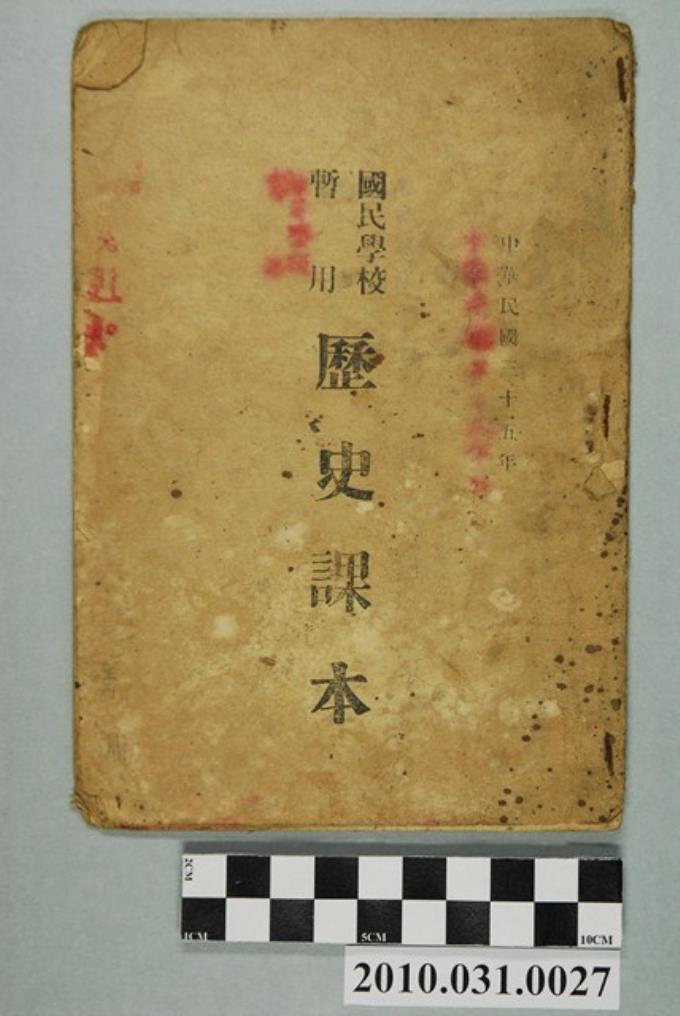 中華民國三十五年
國民學校
暫用
歷史課本
2CM
1CM
5CM
10CM
2010.031.0027